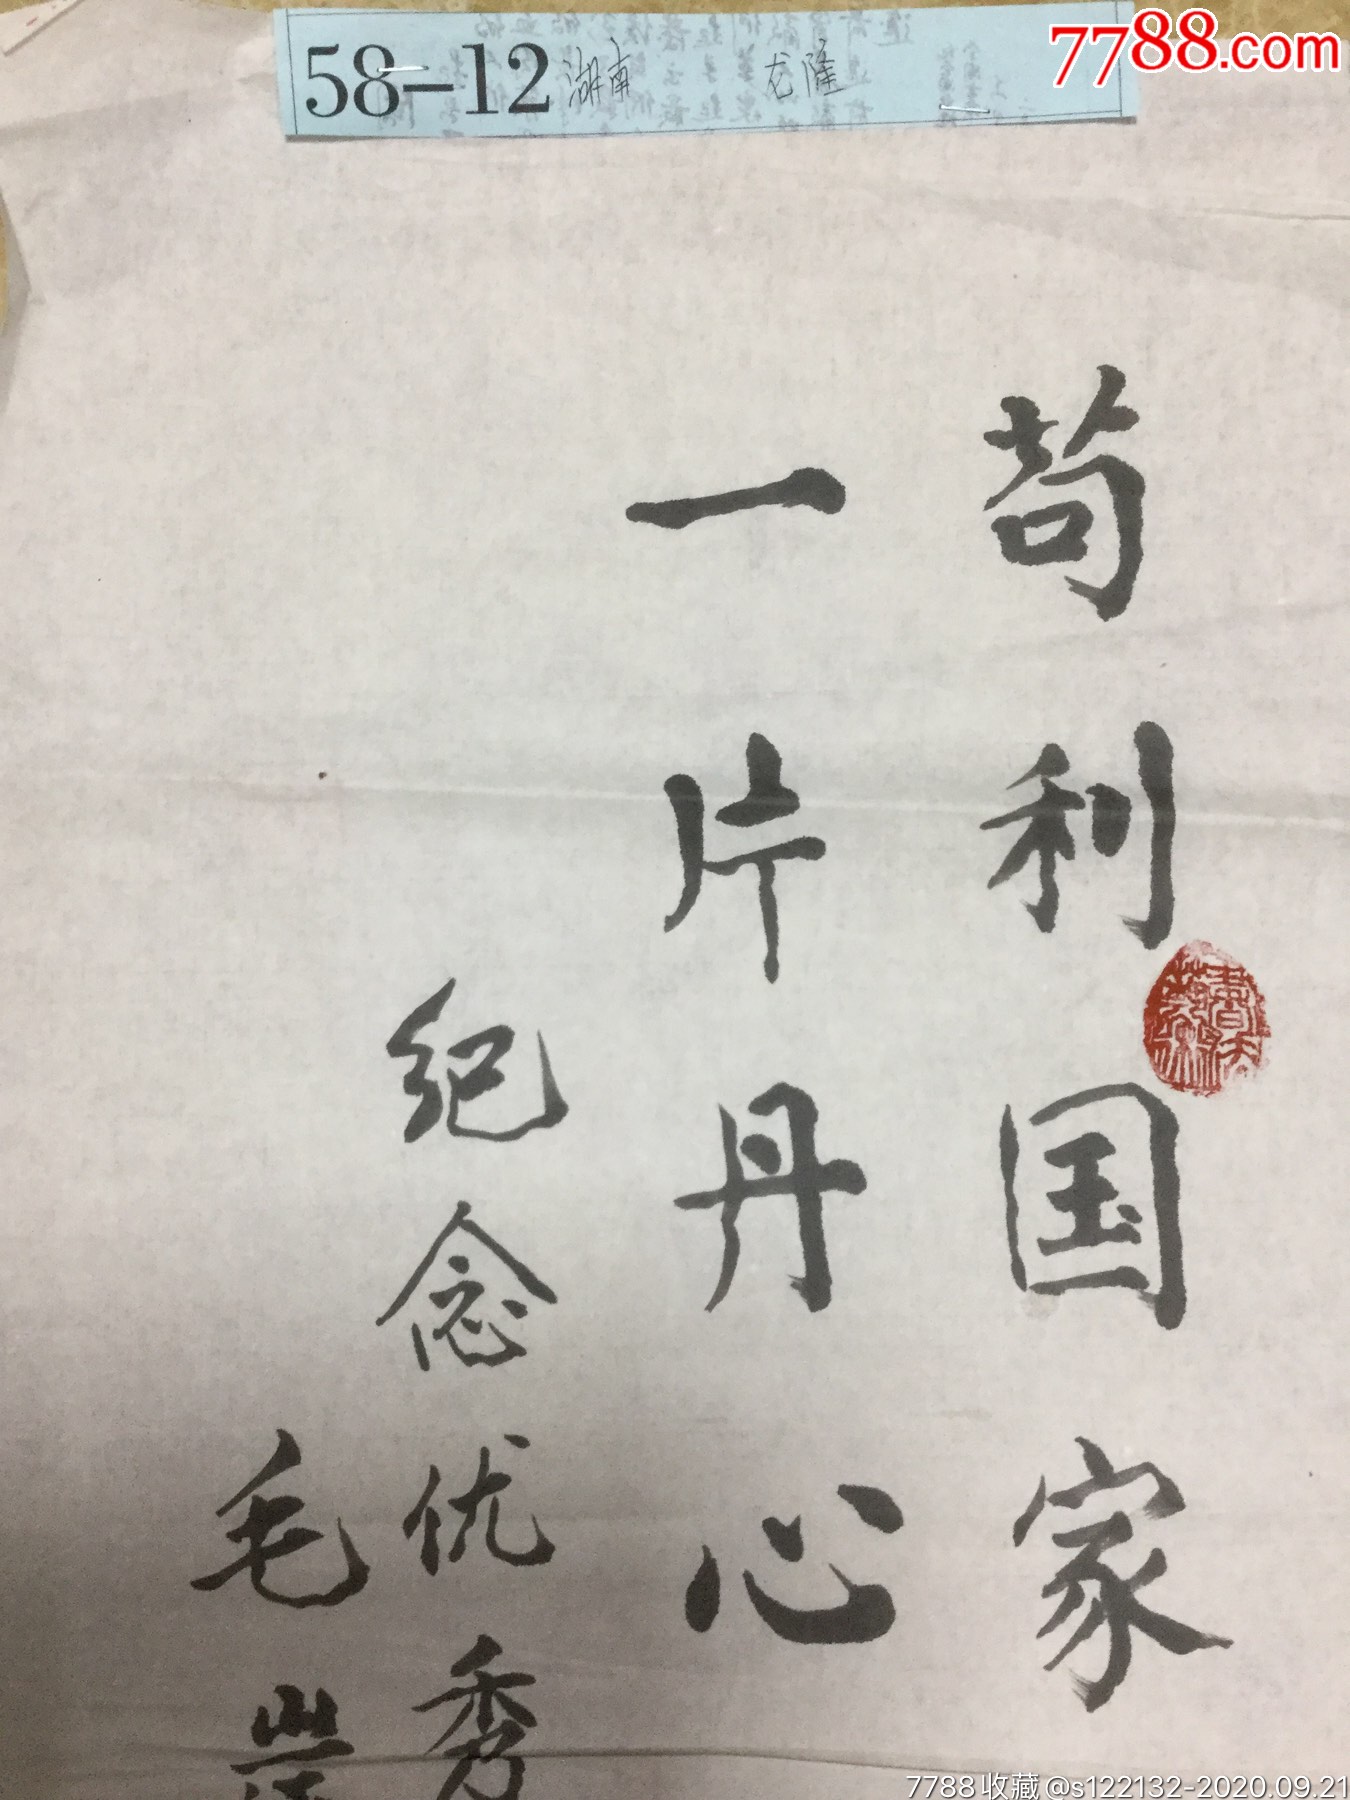 7788.com
58-12 湖南 龙隆
苟利国家
一片丹心
纪念优秀
毛
7788收藏@s122132-2020.09.21